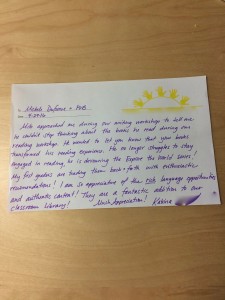 Michele Dufresne + PEB
Milo approached me during our writing workshop to tell me
he couldn't stop thinking about the books he read during our
reading workshop. He wanted to let you know that your books
transformed his reading experience. He no longer struggles to stay
engaged in reading, he is devouring the Explore the World series!
My first graders are trading them back + forth with enthusiastic
recommendations! I am so appreciative of these rich language opportunities
and authentic content! They are a fantastic addition to our
classroom library! Much Appreciation!